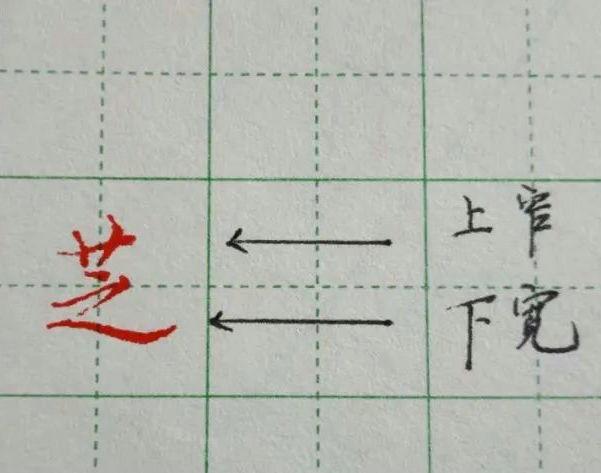 芝
上窄
下宽